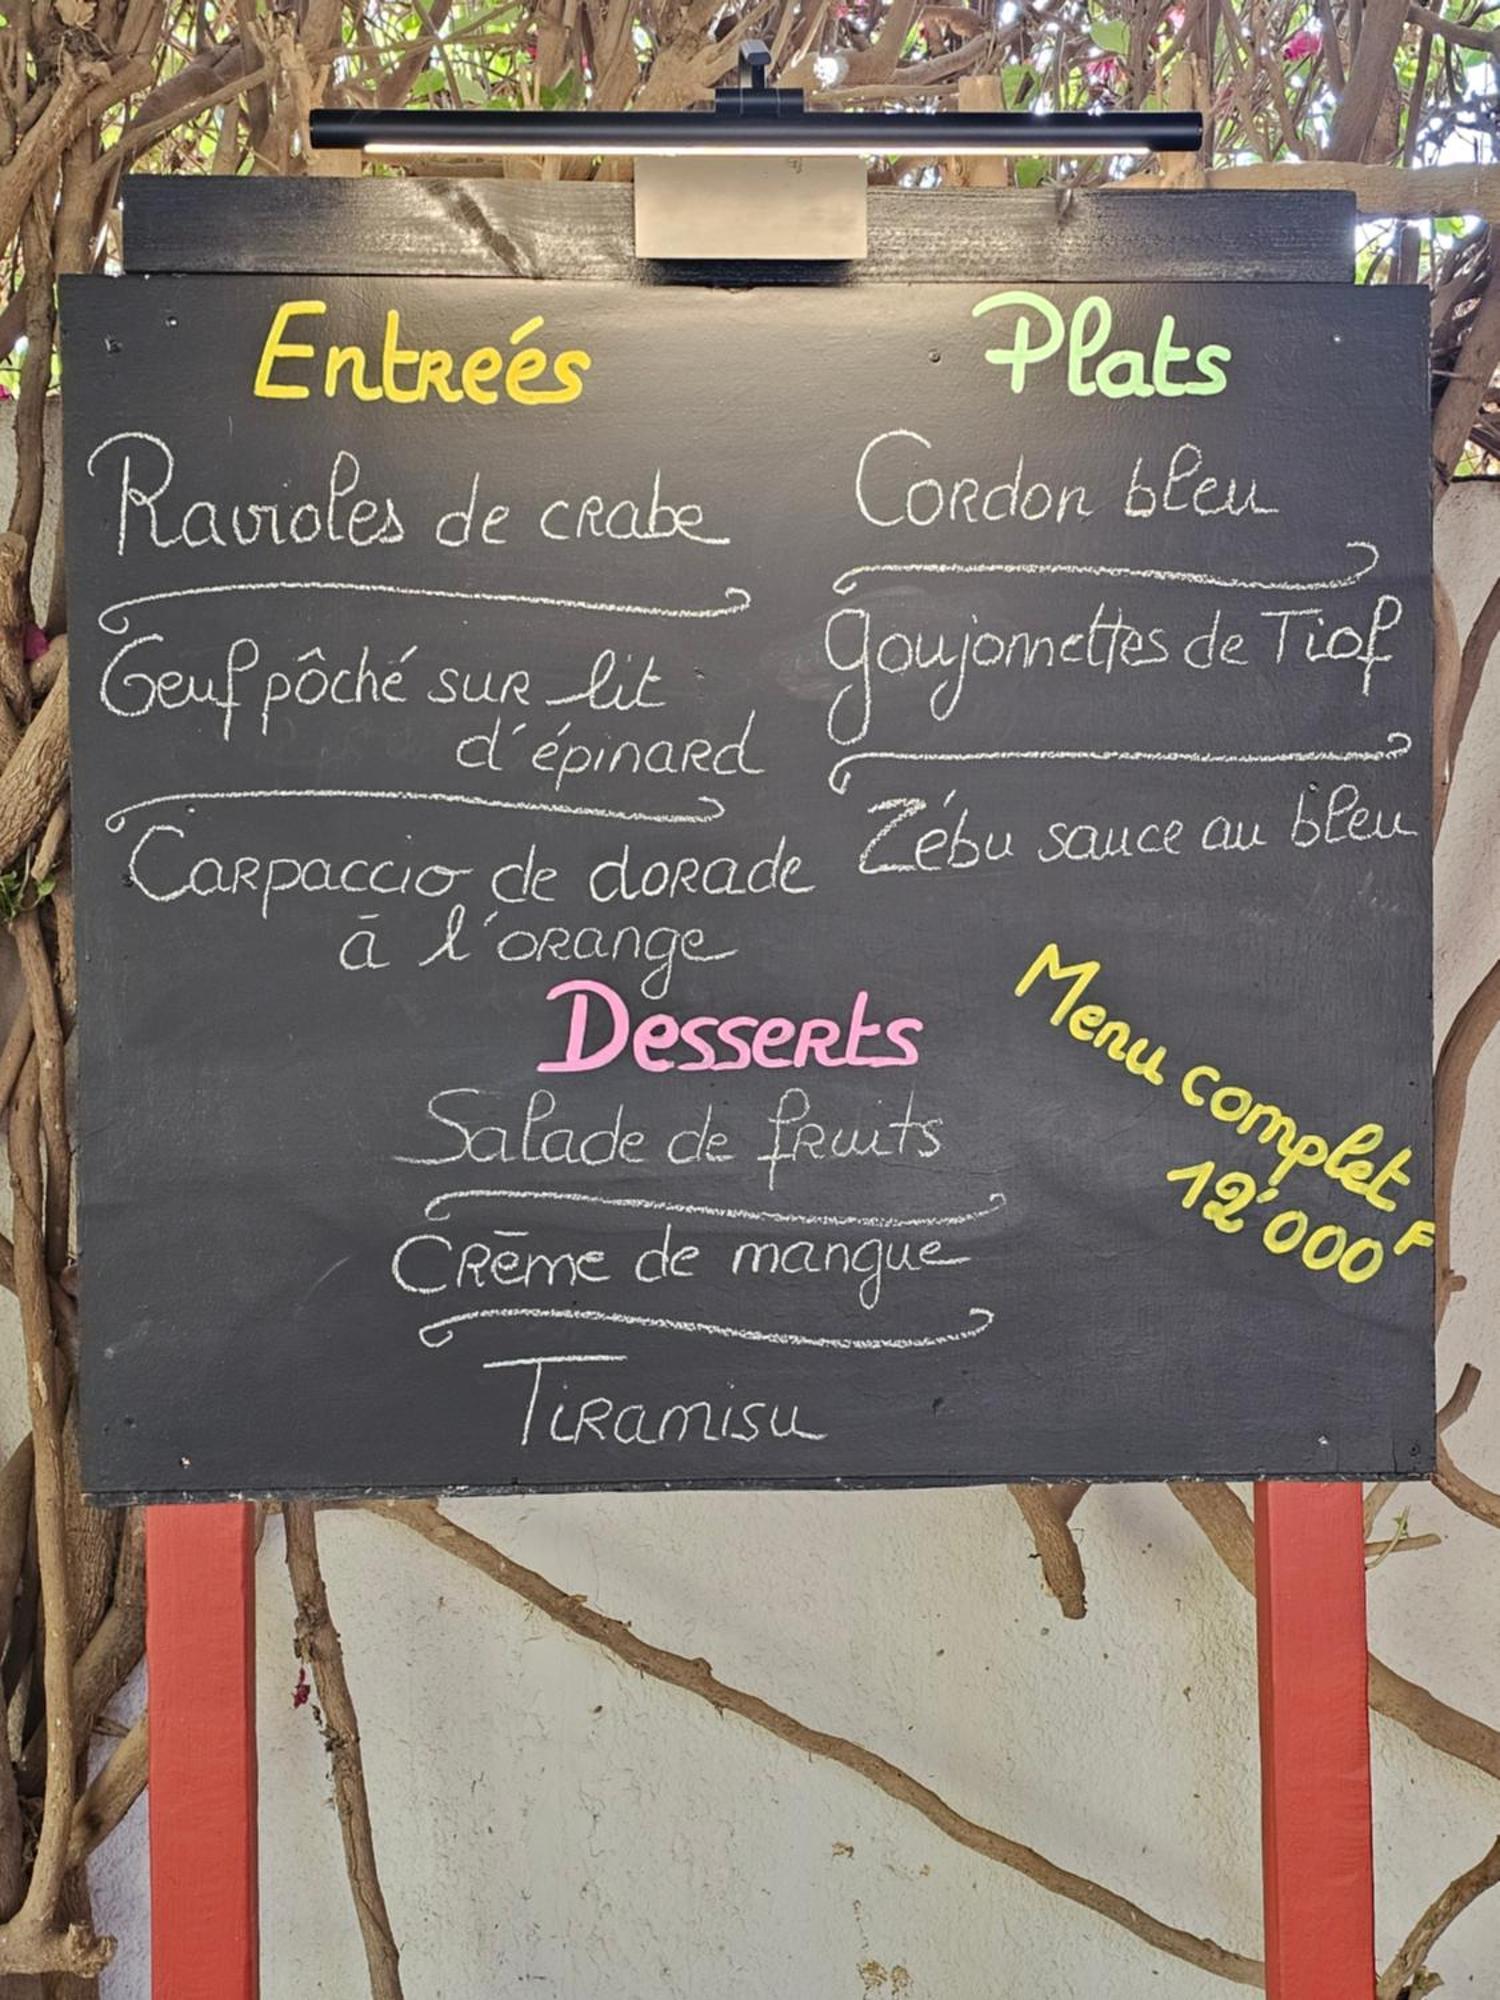 Entreés
Ravioles de crabe
Oeuf pôché sur lit
d'épinard
Carpaccio de dorade
à l'orange
Plats
Cordon bleu
Goujonnettes de Tiof
Zébu sauce au bleu
Desserts
Salade de fruits
Crème de mangue
Tiramisu
Menu complet
12'000 F